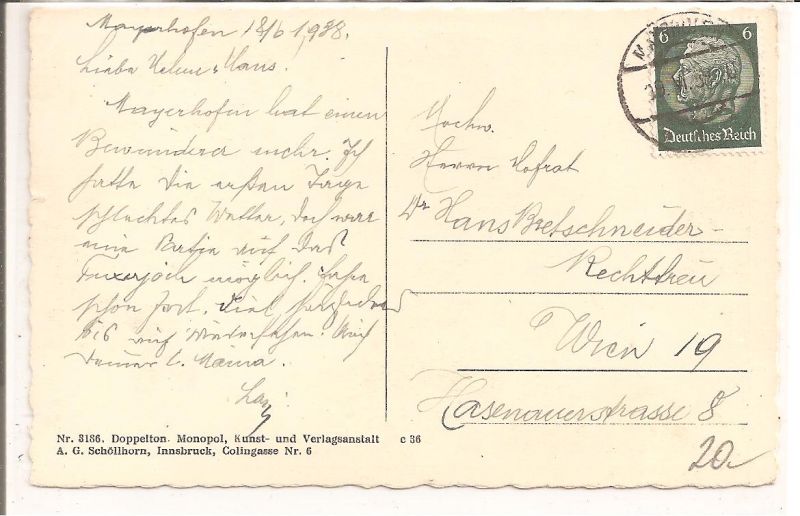 Mayerhofen 18/6 1938.
Liebe Helene, Hans.
Mayerhofen hat einen
Bewunderer mehr. Ich
hatte die ersten Tage
schlechtes Wetter, doch war
eine Partie auf das
Tuxerjoch möglich. Fahre
schon fort. Viel
bis auf Wiedersehen! Auch
Deiner l. Mama.
6 6
Deutsches Reich
Hochw.
Herrn Hofrat
Dr Hans Bretschneider-
Rechttreu
Wien 19
Hasenauerstrasse 8
20.-
Nr. 3136. Doppelton. Monopol, Kunst- und Verlagsanstalt c 36
A. G. Schöllhorn, Innsbruck, Colingasse Nr. 6